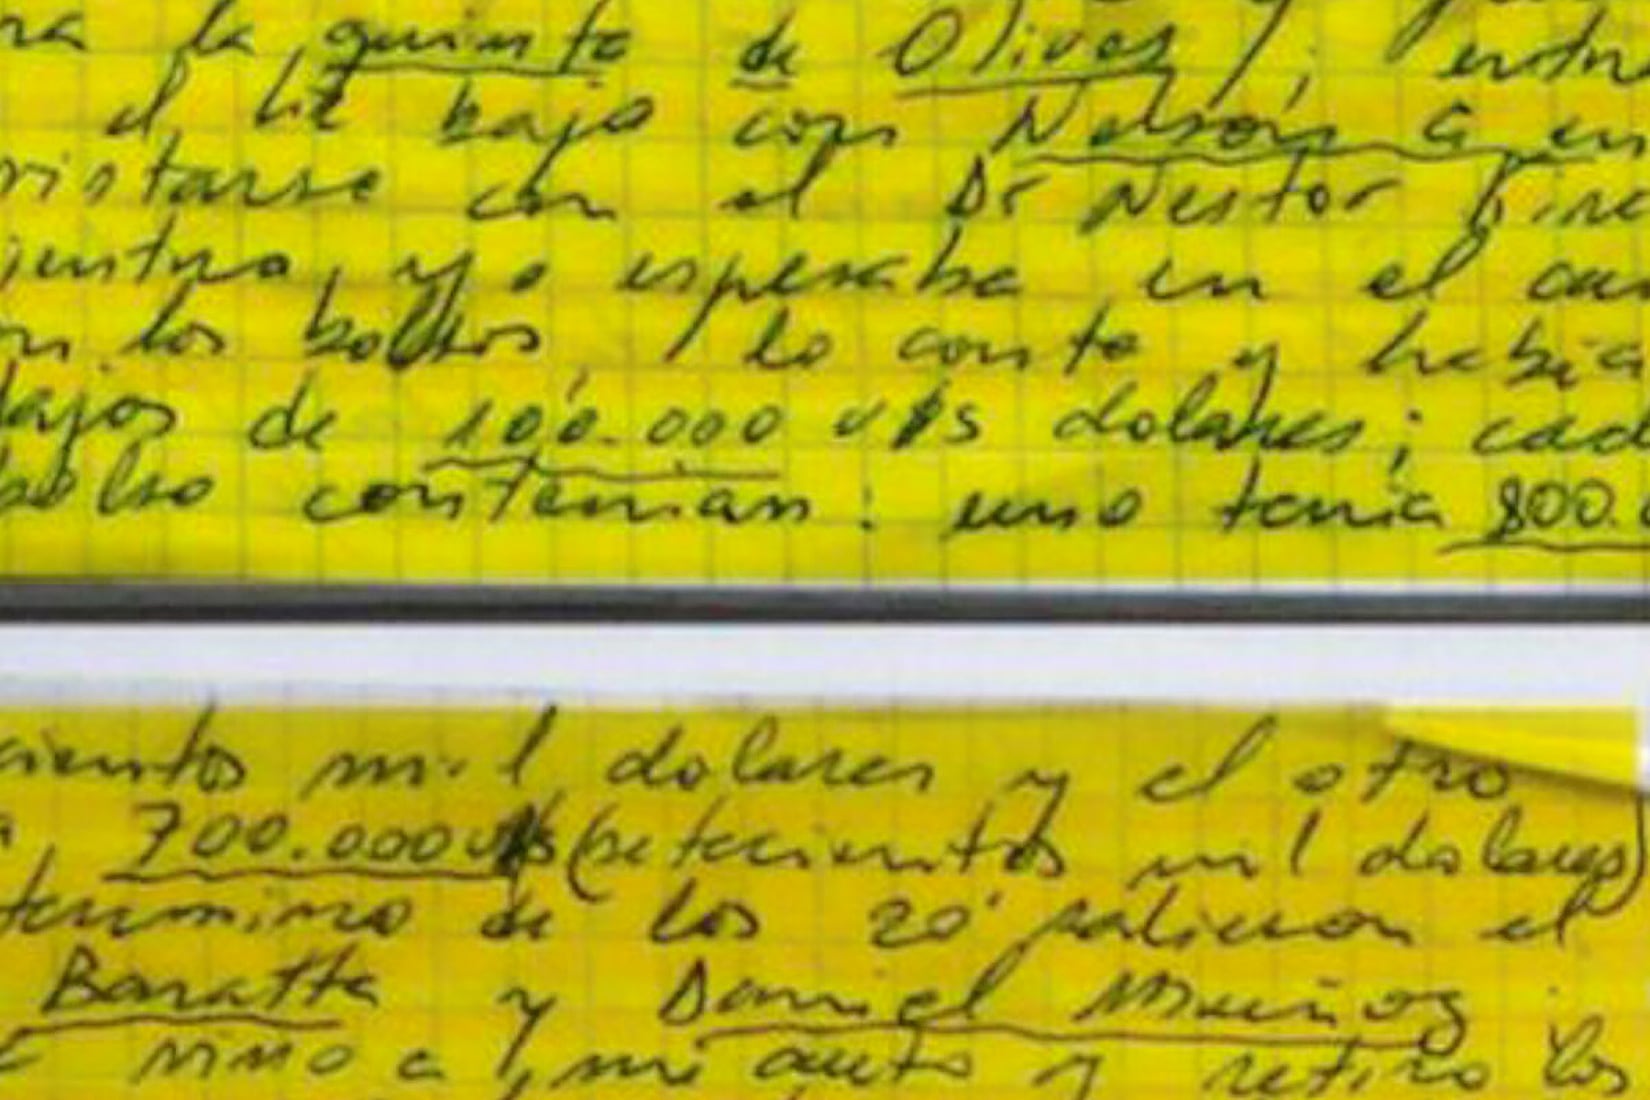 la quinta de Olivos
el Lic bajo con Nelson a en
vistarse con el Dr Nestor
yo esperaba en el
los bolsos, lo conte y habia
fajos de 100.000 U$S dolares; cad
bolso contenian: uno tenia 800.
cientos mil dolares y el otro
700.000 U$S (setecientos mil dolares)
termino de los 20' salieron el
Baratta y Daniel Muñoz
vino a mi auto y retiro los